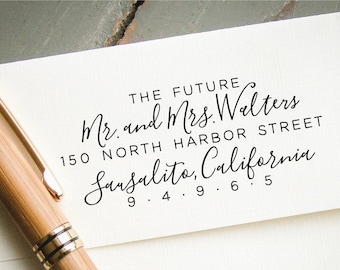 THE FUTURE
Mr. and Mrs. Walters
150 NORTH HARBOR STREET
Sausalito, California
9 · 4 · 9 · 6 · 5